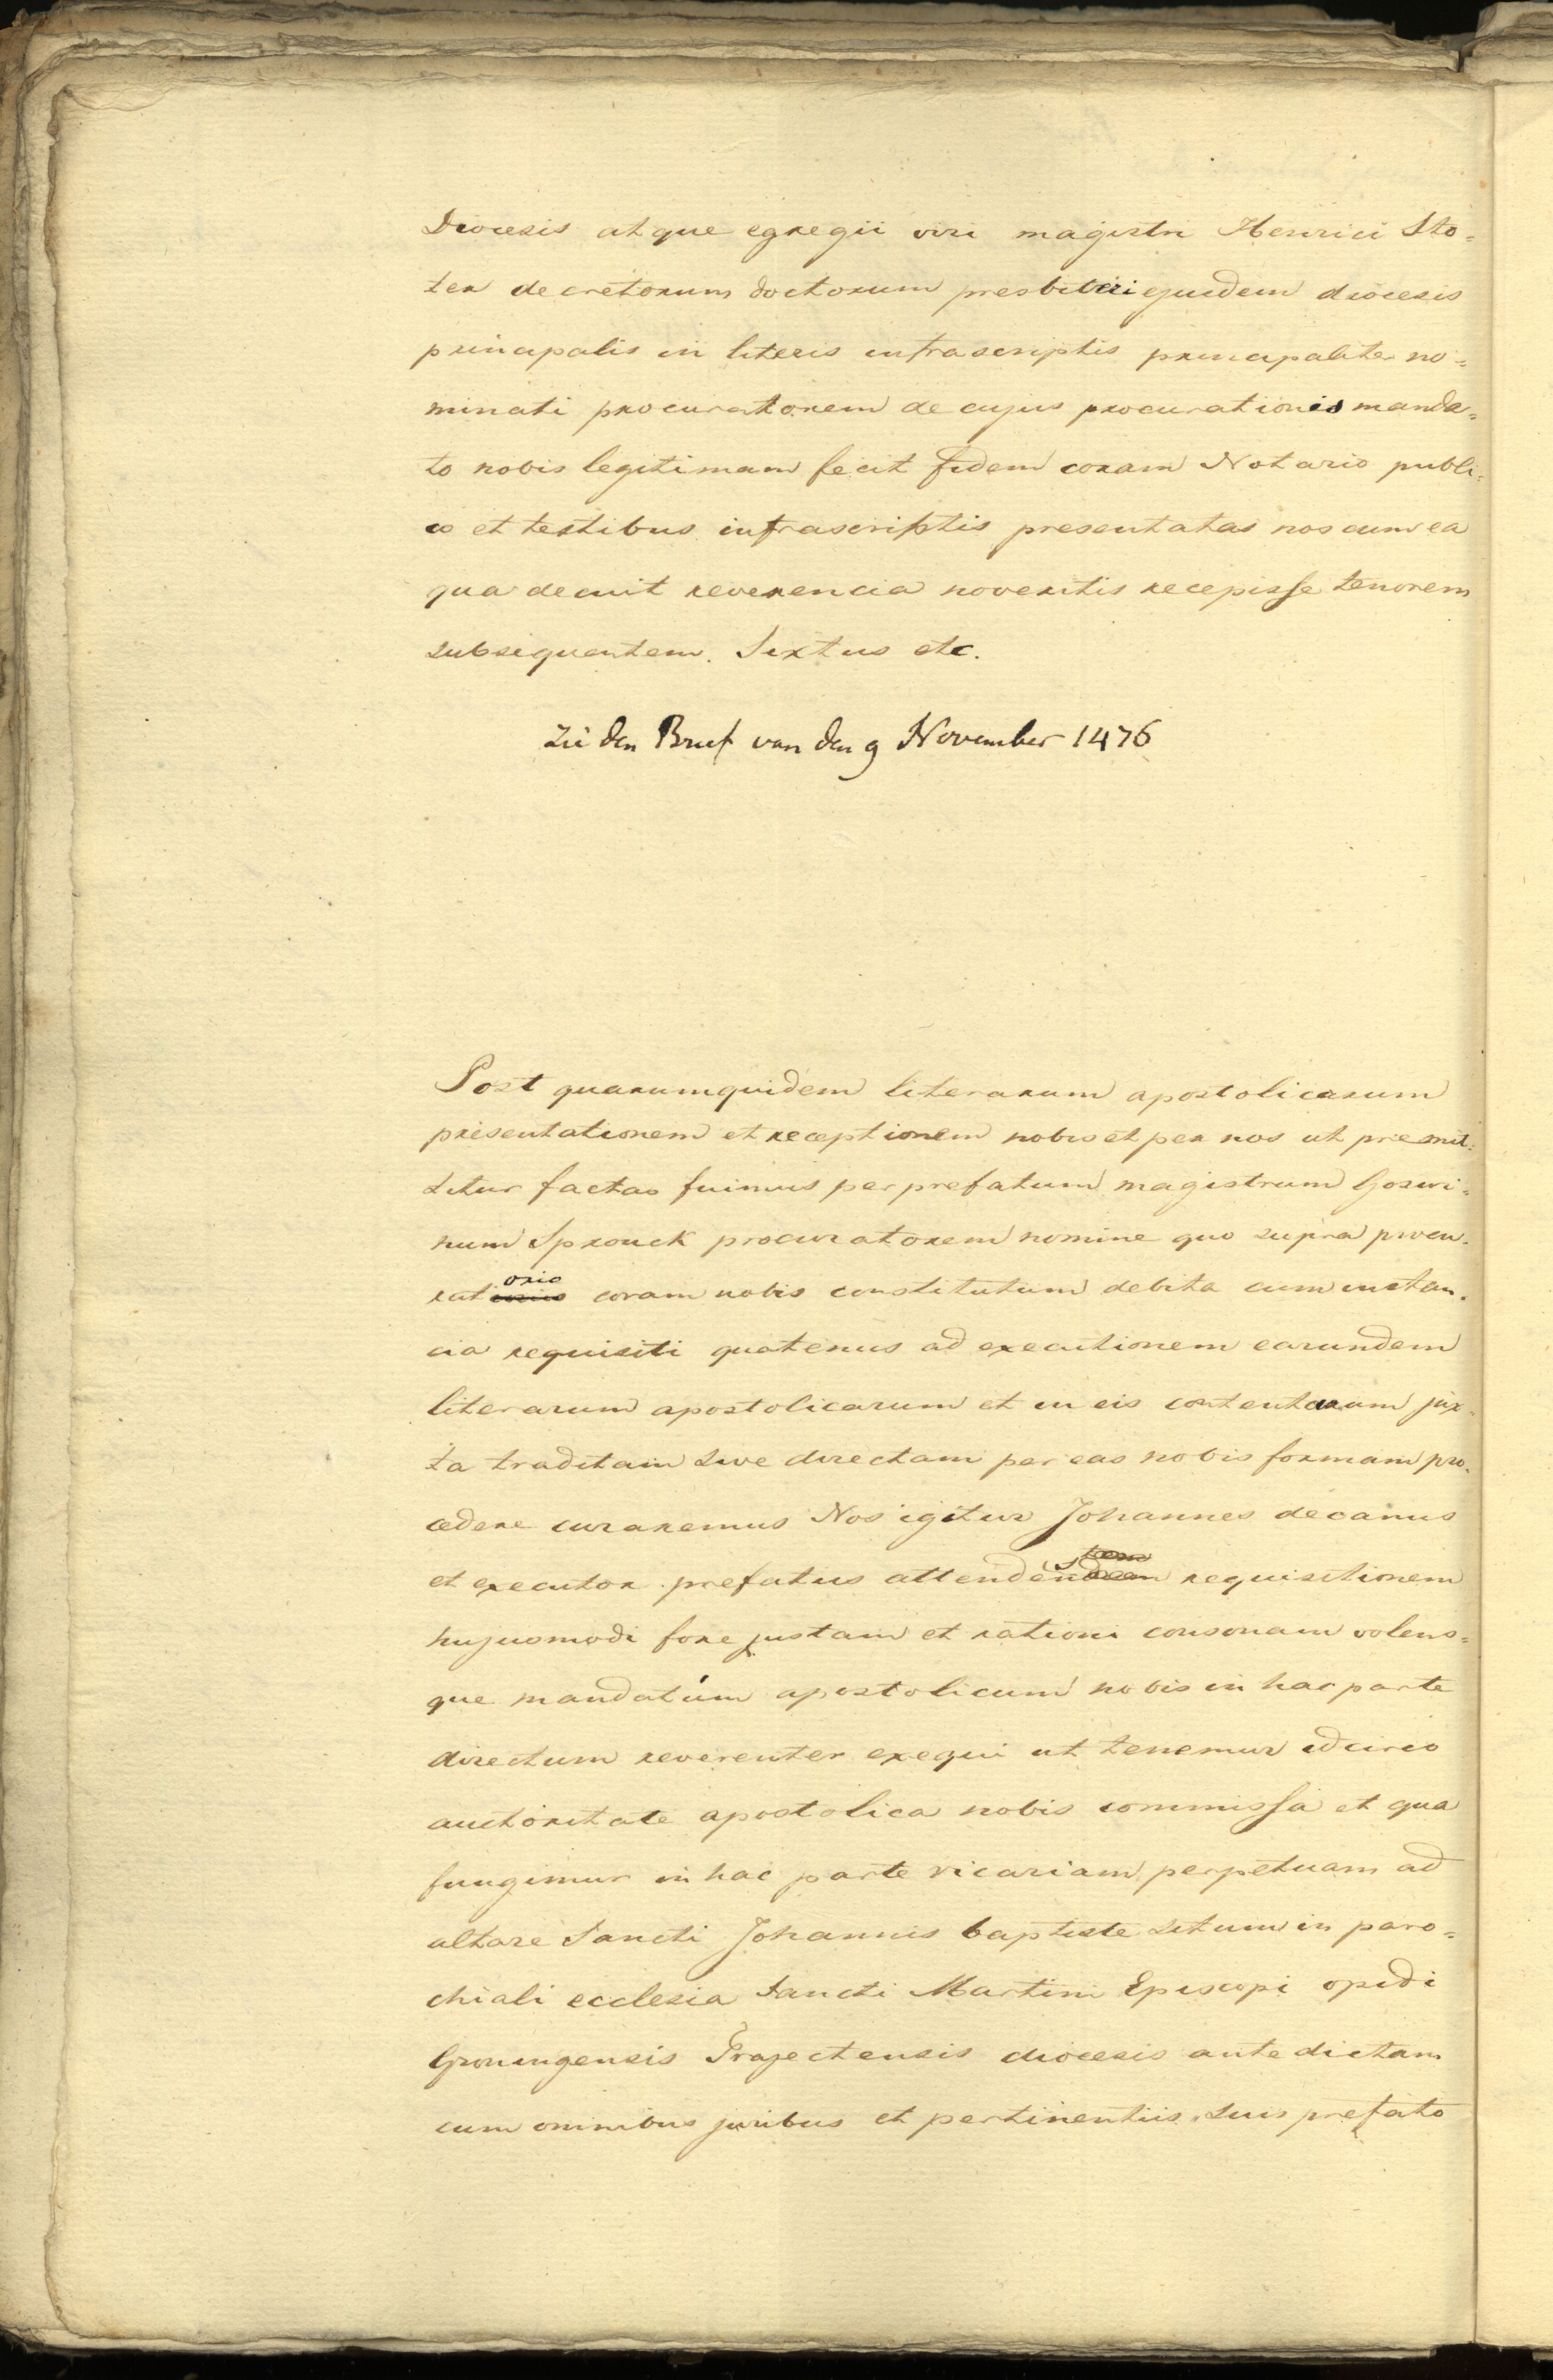 Diocesis atque egregii viri magistri Henrici Sto=
ter decretorum doctorum presbiteri ejusdem diocesis
principalis in literis infrascriptis principaliter no=
minati procuratorem de cujus procurationis manda=
to nobis legitimam fecit fidem coram Notario publi=
co et testibus infrascriptis presentatas nos cum ea
qua decuit reverencia noveritis recepisse tenorem
subsequentem. Sixtus etc.
Zie den Brief van den 9 November 1476
Post quarumquidem literarum apostolicarum
presentationem et receptionem nobis et per nos ut premit=
titur factas fuimus per prefatum magistrum Goswi=
num Sprouck procuratorem nomine quo supra procu=
ratorio coram nobis constitutum debita cum instan=
cia requisiti quatenus ad executionem earundem
literarum apostolicarum et in eis contentarum jux=
ta traditam sive directam per eas nobis formam pro=
cedere curaremus Nos igitur Johannes decanus
et executor prefatus attendens requisitionem
hujusmodi fore justam et rationi consonam volens=
que mandatum apostolicum nobis in hac parte
directum reverenter exequi ut tenemur idcirco
auctoritate apostolica nobis commissa et qua
fungimur in hac parte vicariam perpetuam ad
altare Sancti Johannis baptiste situm in paro=
chiali ecclesia Sancti Martini Episcopi opidi
Groningensis Trajectensis diocesis ante dictam
cum omnibus juribus et pertinentiis suis prefato